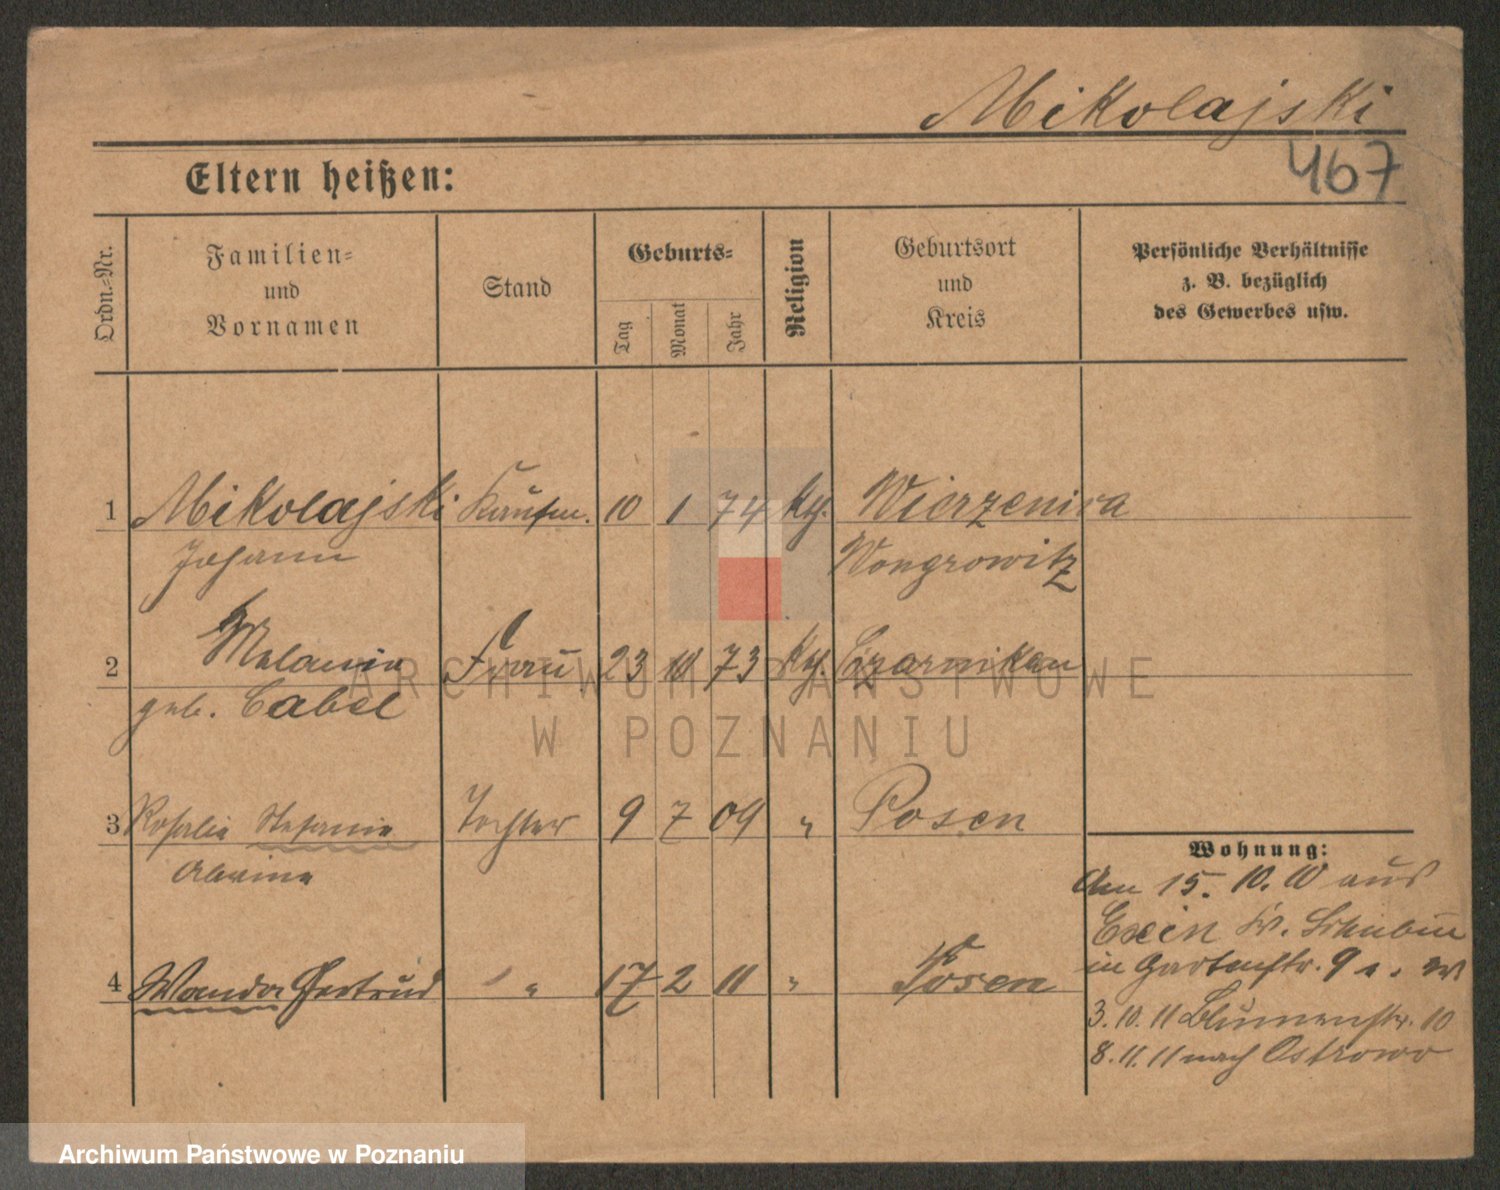 Mikolajski
467
Eltern heißen:
Ordn.-Nr.
Familien-
und
Vornamen
Stand
Geburts-
Tag
Monat
Jahr
Religion
Geburtsort
und
Kreis
Persönliche Verhältnisse
z. B. bezüglich
des Gewerbes usw.
1 Mikolajski Kaufm. 10 1 74 kath. Wierzenica
Johann Wongrowitz
2 Melania Frau 23 10 73 kath. Czarnikau
geb. Cabel
3 Rosalie Stefanie Tochter 9 7 09 " Posen
4 Wanda Gertrud " 17 2 11 " Posen
Wohnung:
Am 15. 10. 10 aus
Exin Kr. Schubin
in Gartenstr. 9
3. 10. 11 Blumenstr. 10
8. 11. 11 nach Ostrowo
ARCHIWUM PAŃSTWOWE
W POZNANIU
Archiwum Państwowe w Poznaniu